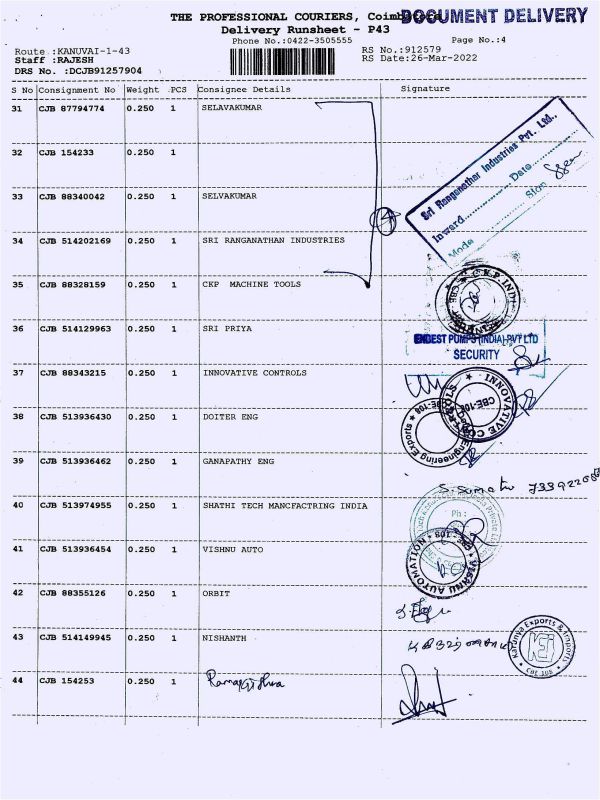 THE PROFESSIONAL COURIERS, Coimbatore
DOCUMENT DELIVERY
Delivery Runsheet - P43
Phone No.:0422-3505555
Page No.:4
Route :KANUVAI-1-43
RS No.:912579
Staff :RAJESH
RS Date:26-Mar-2022
DRS No. :DCJB91257904
S No Consignment No Weight PCS Consignee Details Signature
31 CJB 87794774 0.250 1 SELAVAKUMAR
32 CJB 154233 0.250 1
Sri Ranganathar Industries Pvt. Ltd.,
Inward.............. Date..............
Mode Sign
33 CJB 88340042 0.250 1 SELVAKUMAR
34 CJB 514202169 0.250 1 SRI RANGANATHAN INDUSTRIES
35 CJB 88328159 0.250 1 CKP MACHINE TOOLS
C.K.P. INDU
CBE
36 CJB 514129963 0.250 1 SRI PRIYA
ENDEST PUMPS (INDIA) PVT LTD
SECURITY
37 CJB 88343215 0.250 1 INNOVATIVE CONTROLS
INNOVATIVE CONTROLS
CBE-108
38 CJB 513936430 0.250 1 DOITER ENG
Engineering Exports
CBE-108
39 CJB 513936462 0.250 1 GANAPATHY ENG
40 CJB 513974955 0.250 1 SHATHI TECH MANCFACTRING INDIA
Ph :
41 CJB 513936454 0.250 1 VISHNU AUTO
VISHNU AUTOMATION
CBE-108
42 CJB 88355126 0.250 1 ORBIT
43 CJB 514149945 0.250 1 NISHANTH
Karunya Exports & Imports
KEI
CBE 108
44 CJB 154253 0.250 1 Ramakrishna